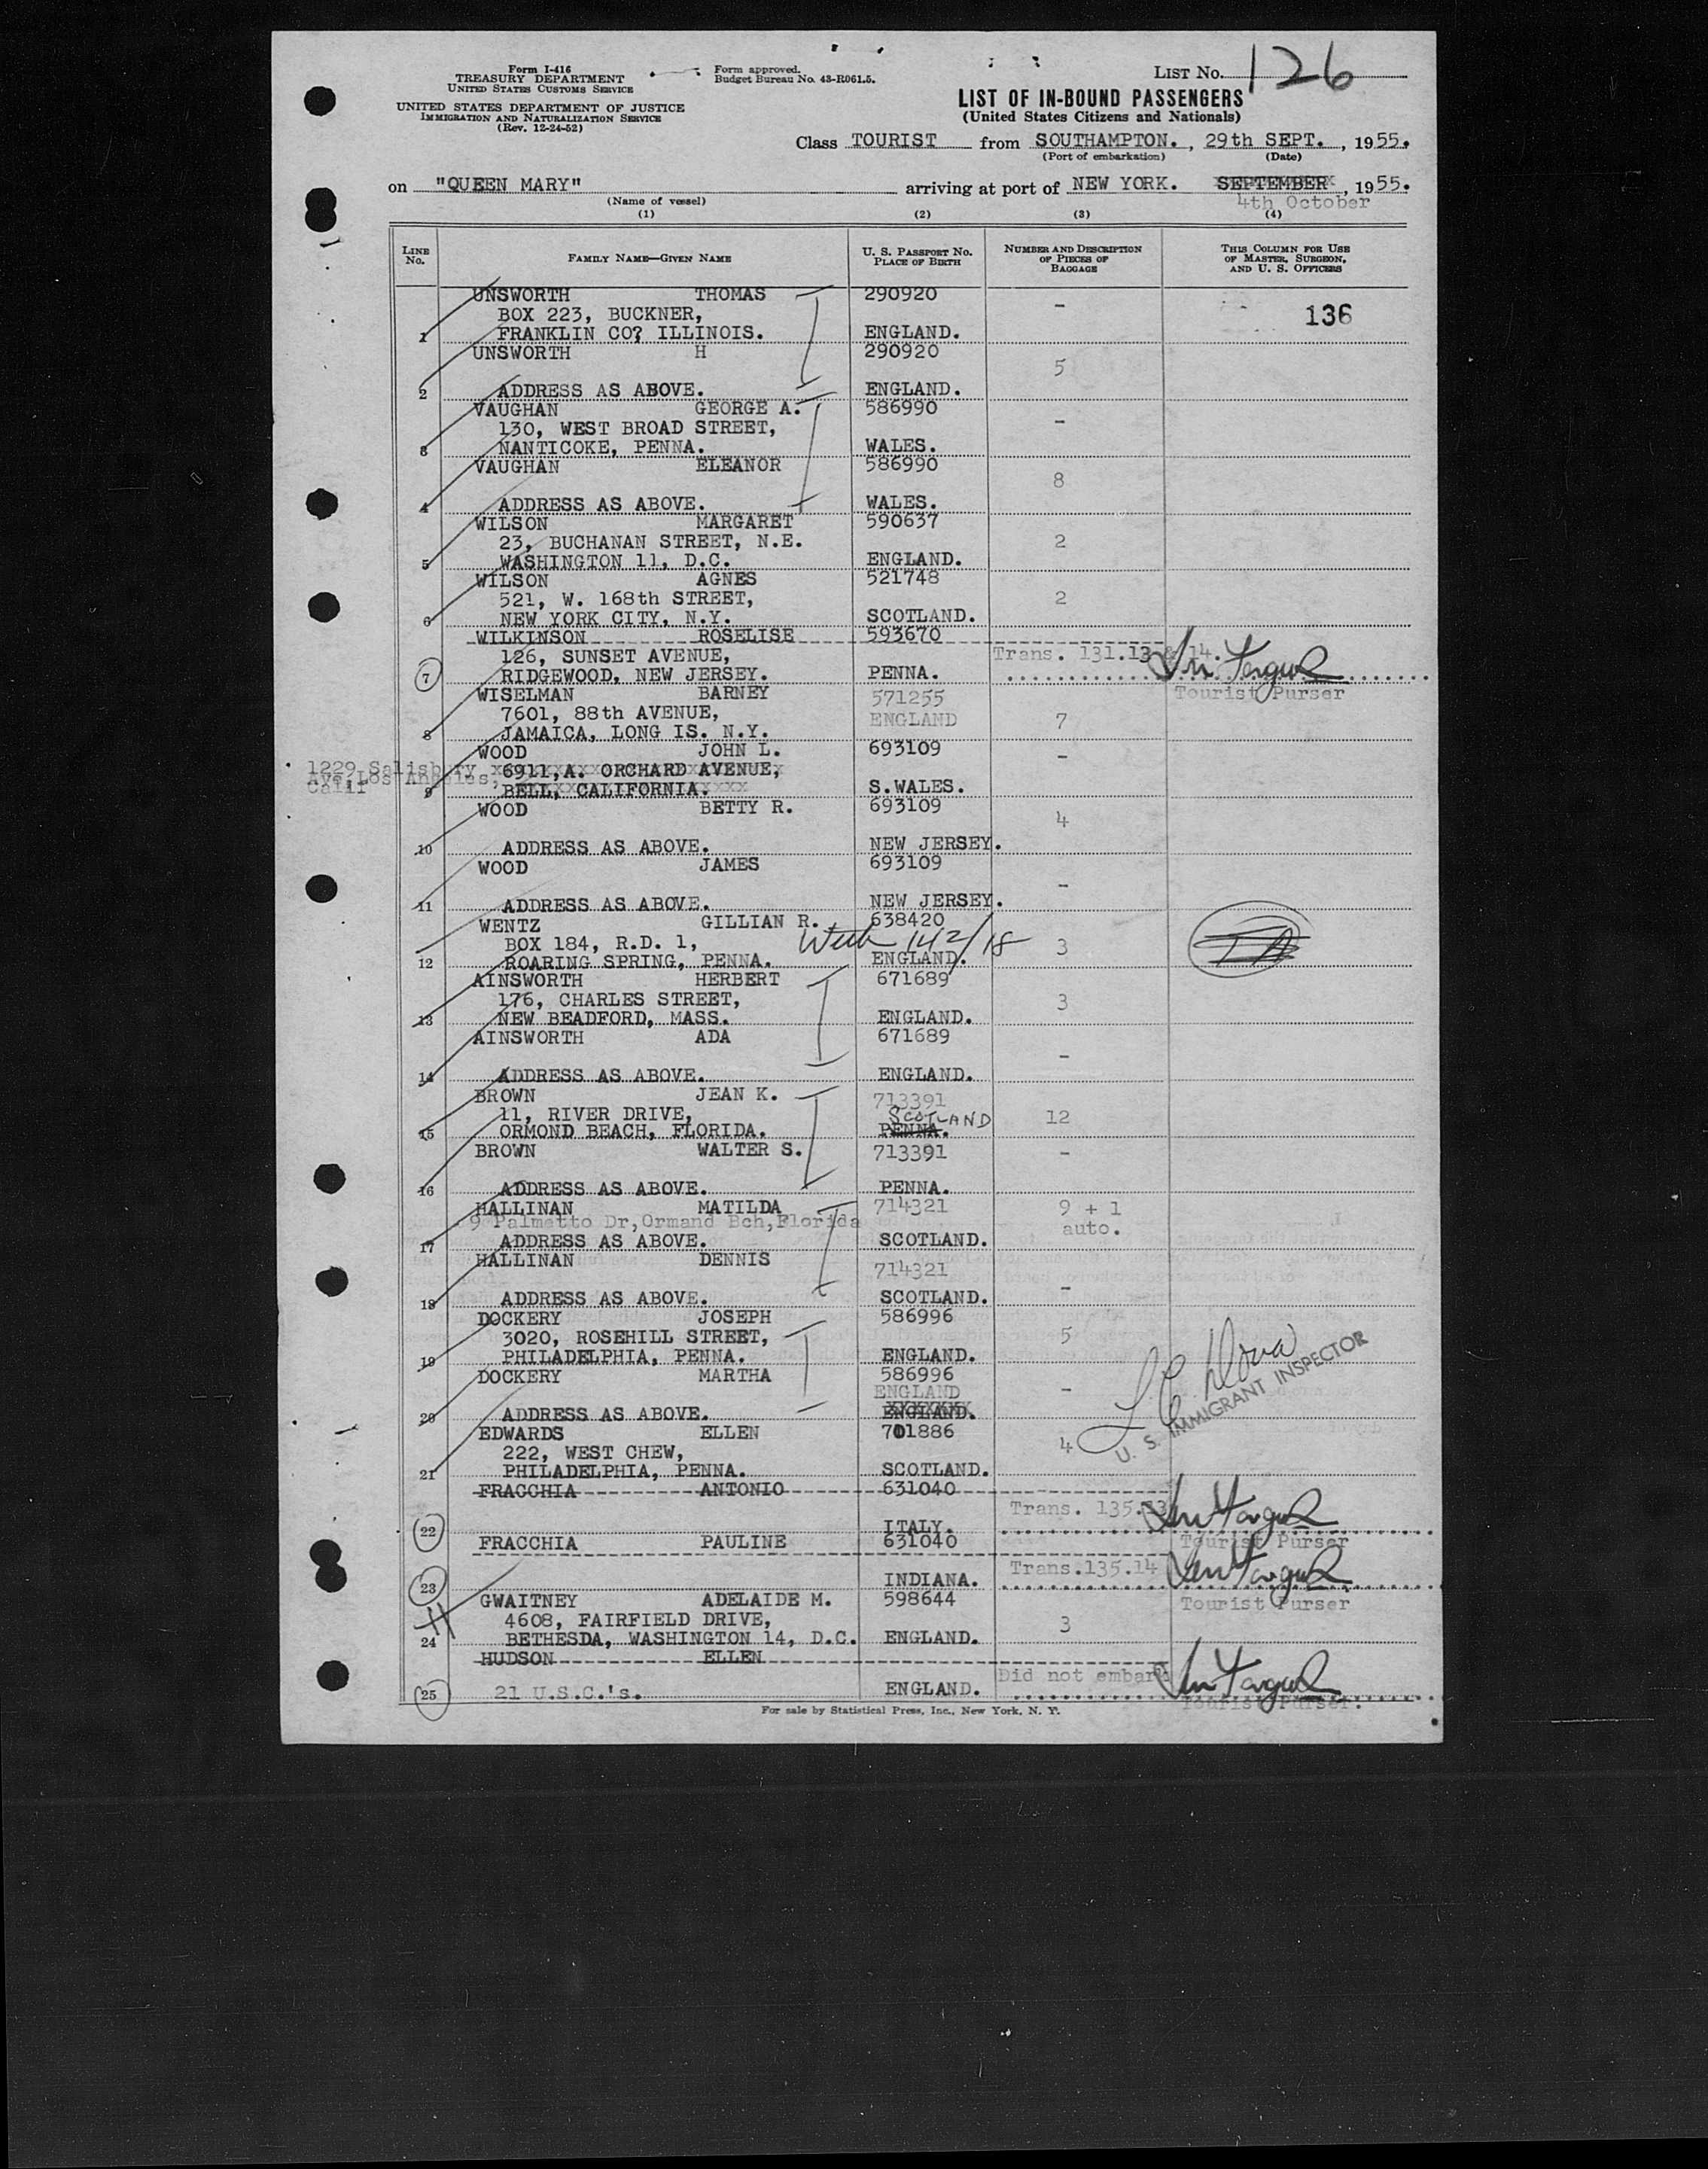 Form I-416
TREASURY DEPARTMENT
UNITED STATES CUSTOMS SERVICE
UNITED STATES DEPARTMENT OF JUSTICE
IMMIGRATION AND NATURALIZATION SERVICE
(Rev. 12-24-52)
Form approved.
Budget Bureau No. 43-R061.5.
LIST NO. 126
LIST OF IN-BOUND PASSENGERS
(United States Citizens and Nationals)
Class TOURIST from SOUTHAMPTON. , 29th SEPT. , 1955.
(Port of embarkation) (Date)
on "QUEEN MARY" arriving at port of NEW YORK. SEPTEMBER , 1955.
4th October
(Name of vessel)
(1) (2) (3) (4)
LINE NO. FAMILY NAME—GIVEN NAME U. S. PASSPORT NO. PLACE OF BIRTH NUMBER AND DESCRIPTION OF PIECES OF BAGGAGE THIS COLUMN FOR USE OF MASTER, SURGEON, AND U. S. OFFICERS
UNSWORTH THOMAS 290920 -
BOX 223, BUCKNER, 136
1 FRANKLIN CO? ILLINOIS. ENGLAND.
UNSWORTH H 290920
5
2 ADDRESS AS ABOVE. ENGLAND.
VAUGHAN GEORGE A. 586990
130, WEST BROAD STREET, -
3 NANTICOKE, PENNA. WALES.
VAUGHAN ELEANOR 586990
8
4 ADDRESS AS ABOVE. WALES.
WILSON MARGARET 590637
23, BUCHANAN STREET, N.E. 2
5 WASHINGTON 11, D.C. ENGLAND.
WILSON AGNES 521748
521, W. 168th STREET, 2
6 NEW YORK CITY, N.Y. SCOTLAND.
WILKINSON ROSELISE 593670
126, SUNSET AVENUE, Trans. 131.13 & 14.
7 RIDGEWOOD, NEW JERSEY. PENNA.
WISELMAN BARNEY 571255 Tourist Purser
7601, 88th AVENUE, ENGLAND 7
8 JAMAICA, LONG IS. N.Y.
WOOD JOHN L. 693109 -
1229 Salisbury 6911,A. ORCHARD AVENUE,
Ave, Los Angeles,
Calif
9 BELL, CALIFORNIA. S.WALES.
WOOD BETTY R. 693109
4
10 ADDRESS AS ABOVE. NEW JERSEY.
WOOD JAMES 693109
-
11 ADDRESS AS ABOVE. NEW JERSEY.
WENTZ GILLIAN R. 638420
BOX 184, R.D. 1, With 142/18 3
12 ROARING SPRING, PENNA. ENGLAND.
AINSWORTH HERBERT 671689
176, CHARLES STREET, 3
13 NEW BEADFORD, MASS. ENGLAND.
AINSWORTH ADA 671689
-
14 ADDRESS AS ABOVE. ENGLAND.
BROWN JEAN K. 713391
11, RIVER DRIVE, SCOTLAND 12
15 ORMOND BEACH, FLORIDA. PENNA.
BROWN WALTER S. 713391 -
16 ADDRESS AS ABOVE. PENNA.
HALLINAN MATILDA 714321 9 + 1
9 Palmetto Dr,Ormand Bch,Florida auto.
17 ADDRESS AS ABOVE. SCOTLAND.
HALLINAN DENNIS 714321
-
18 ADDRESS AS ABOVE. SCOTLAND.
DOCKERY JOSEPH 586996
3020, ROSEHILL STREET, 5
19 PHILADELPHIA, PENNA. ENGLAND.
DOCKERY MARTHA 586996
ENGLAND -
20 ADDRESS AS ABOVE. ENGLAND.
U. S. IMMIGRANT INSPECTOR
EDWARDS ELLEN 701886
222, WEST CHEW, 4
21 PHILADELPHIA, PENNA. SCOTLAND.
FRACCHIA ANTONIO 631040
Trans. 135.13
22 ITALY.
FRACCHIA PAULINE 631040 Tourist Purser
Trans.135.14
23 INDIANA.
GWAITNEY ADELAIDE M. 598644 Tourist Purser
4608, FAIRFIELD DRIVE, 3
24 BETHESDA, WASHINGTON 14, D.C. ENGLAND.
HUDSON ELLEN
Did not embark
25 21 U.S.C.'s. ENGLAND.
Tourist Purser.
For sale by Statistical Press, Inc., New York, N. Y.